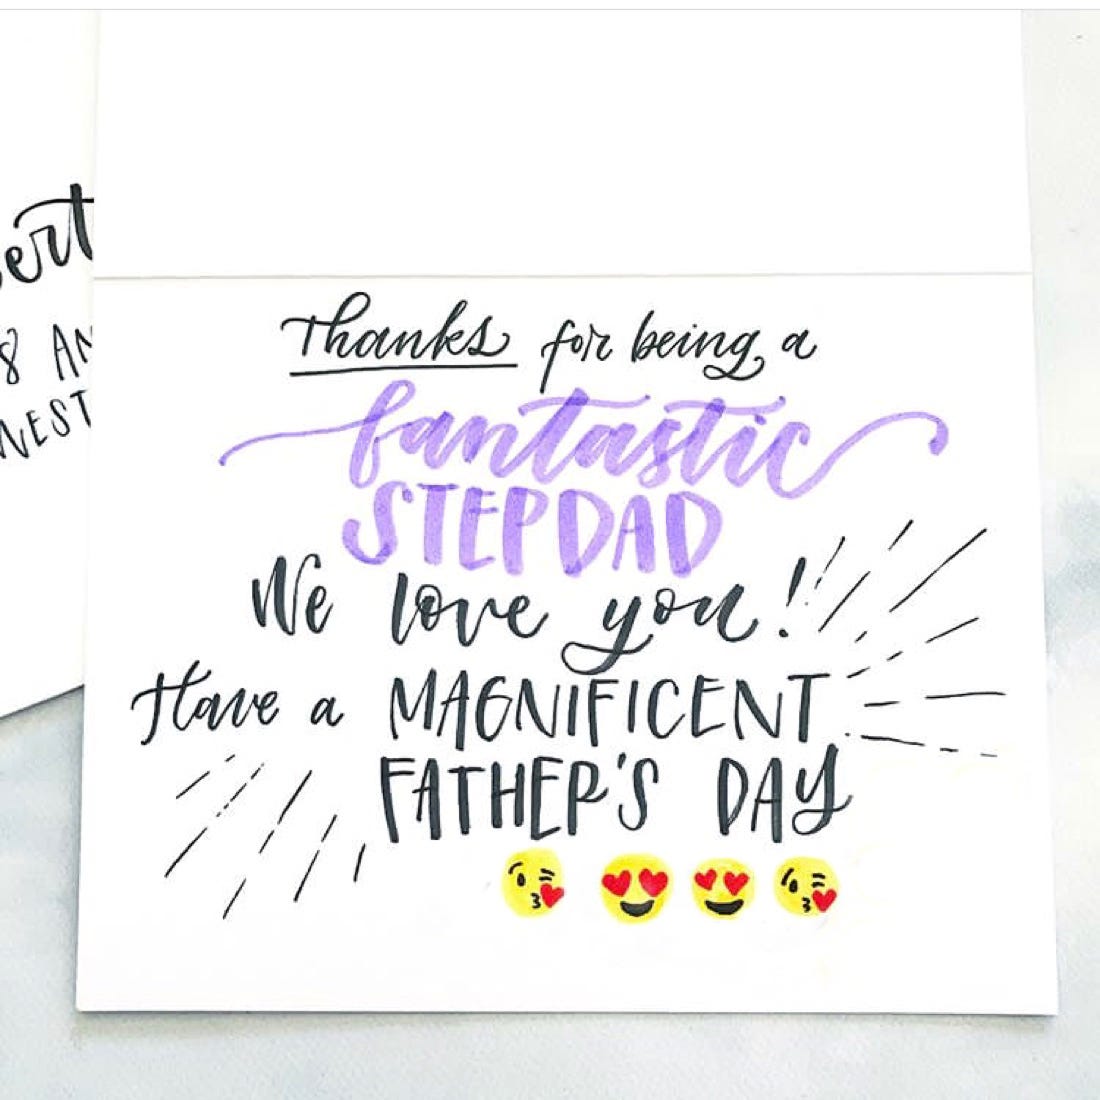 Thanks for being a
fantastic
STEPDAD
We love you!
Have a MAGNIFICENT
FATHER'S DAY
8